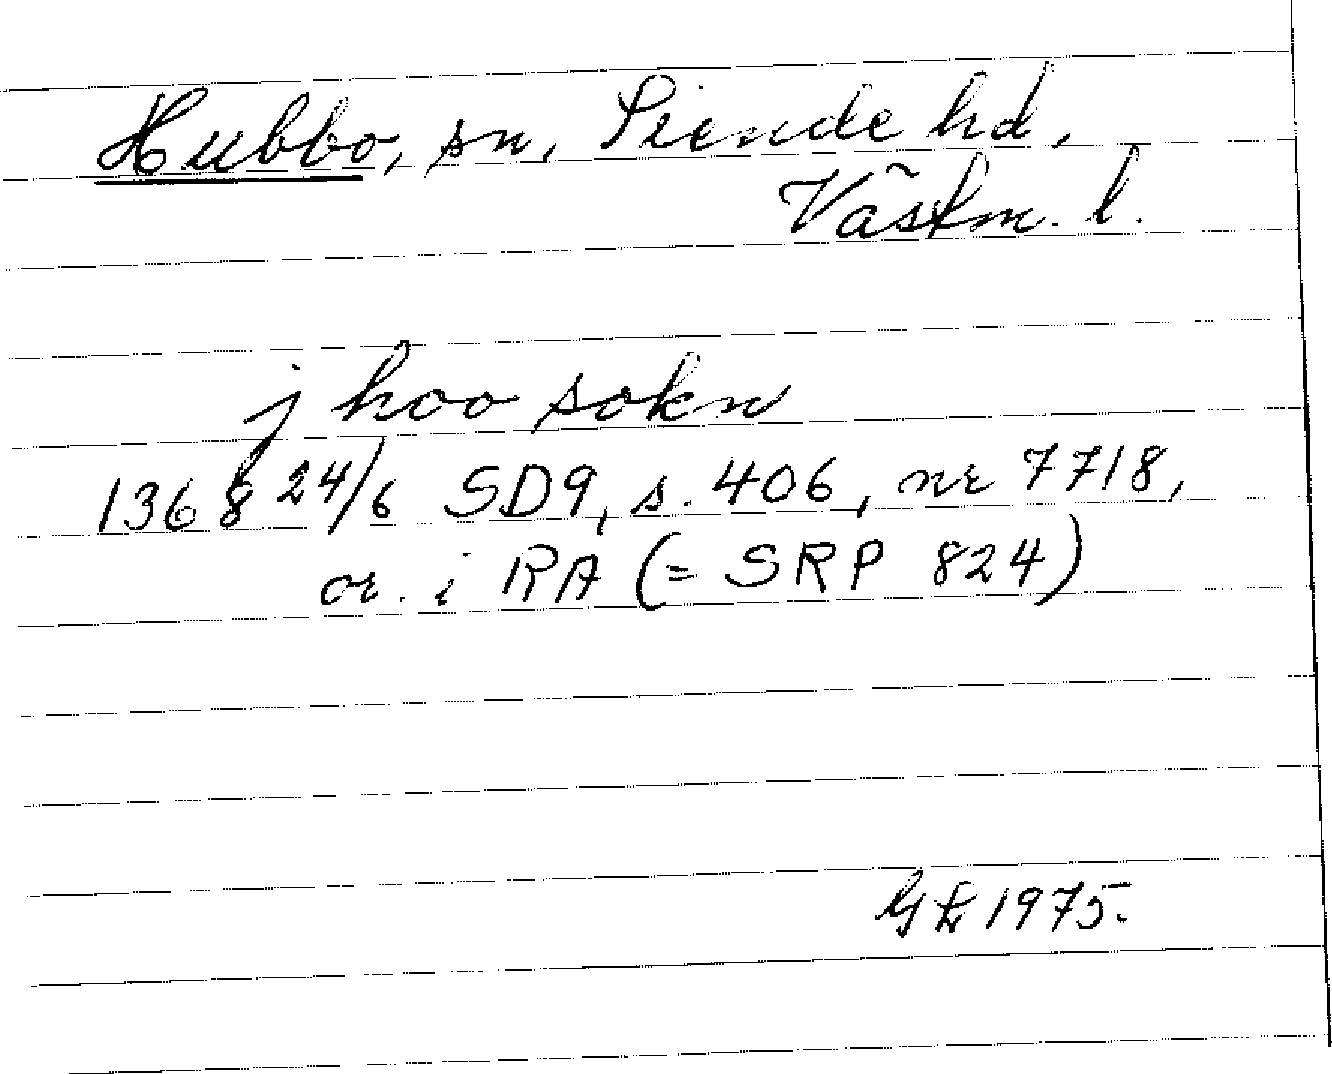 Hubbo, sn, Siende hd,
Västm. l.
j hoo sokn
1368 24/6 SD9, s. 406, nr 7718,
or. i RA (= SRP 824)
1975.